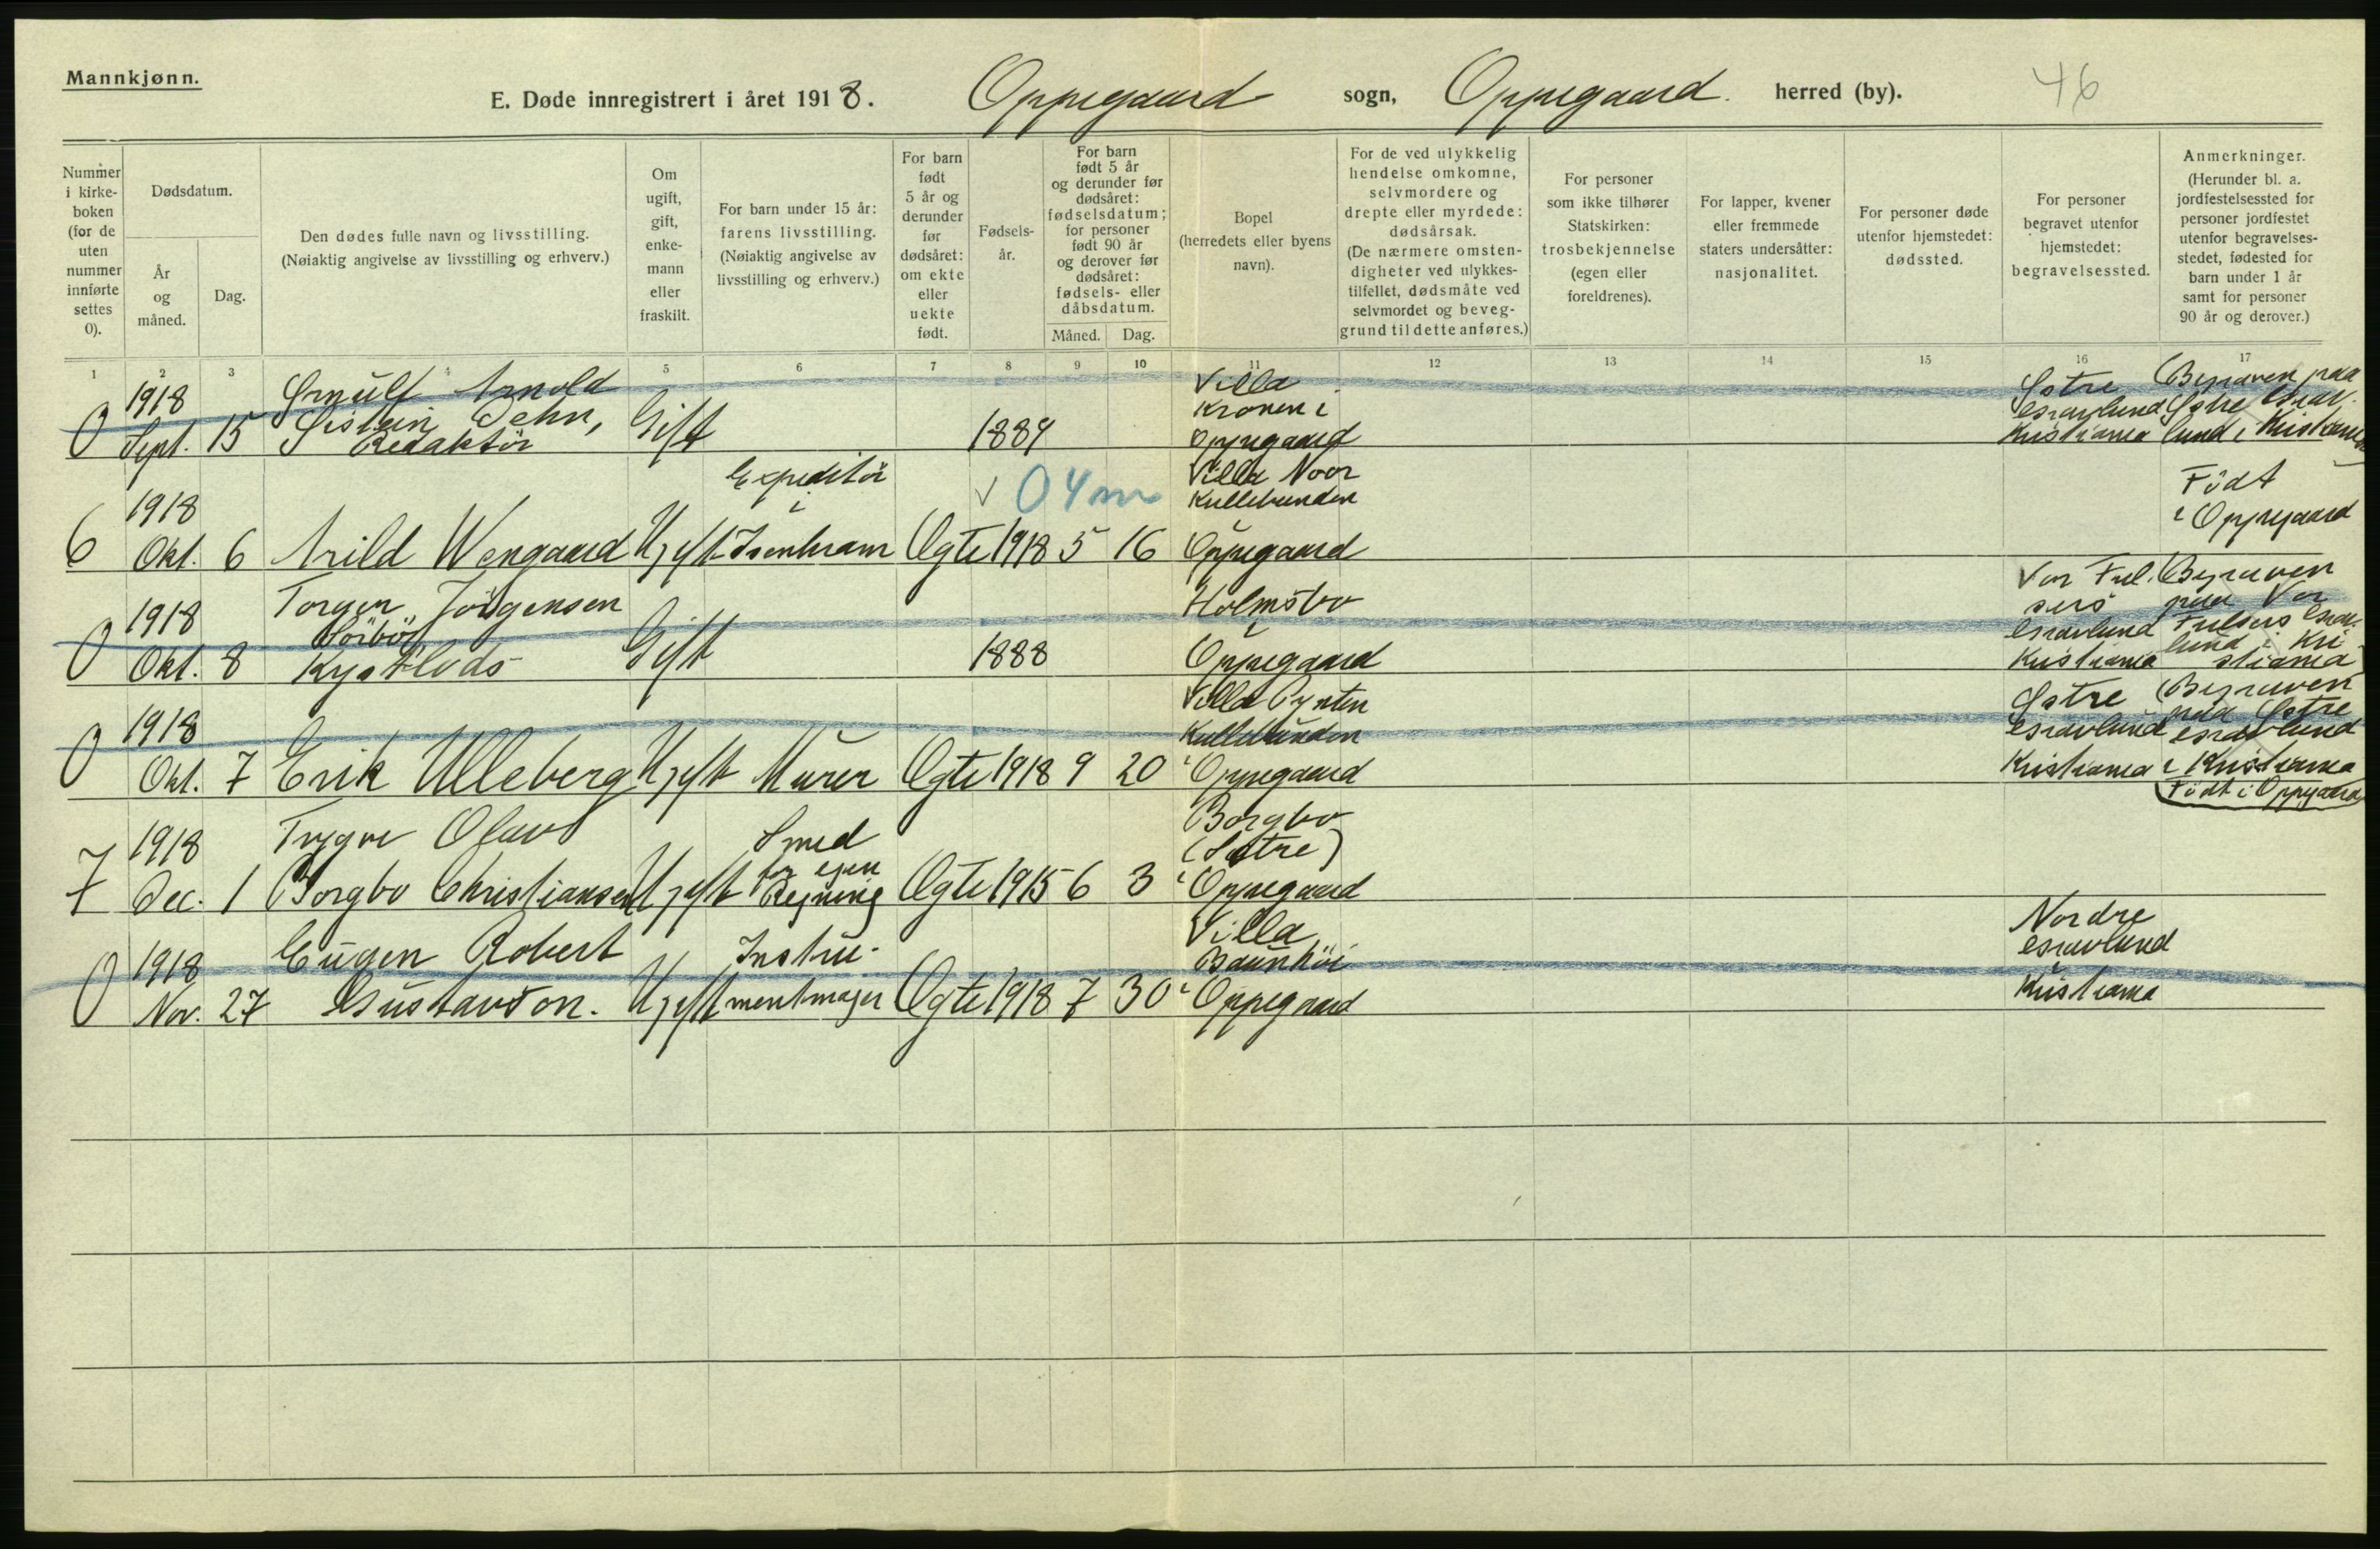 Mannkjønn.
E. Døde innregistrert i året 1918. Oppegaard sogn, Oppegaard. herred (by). 46
Nummer i kirke- boken (for de uten nummer innførte settes 0).
Dødsdatum.
År og måned.
Dag.
Den dødes fulle navn og livsstilling.
(Nøiaktig angivelse av livsstilling og erhverv.)
Om ugift, gift, enke- mann eller fraskilt.
For barn under 15 år: farens livsstilling. (Nøiaktig angivelse av livsstilling og erhverv.)
For barn født 5 år og derunder før dødsåret: om ekte eller uekte født.
Fødsels- år.
For barn født 5 år og derunder før dødsåret: fødselsdatum; for personer født 90 år og derover før dødsåret: fødsels- eller dåbsdatum.
Måned. Dag.
Bopel (herredets eller byens navn).
For de ved ulykkelig hendelse omkomne, selvmordere og drepte eller myrdede: dødsårsak. (De nærmere omsten- digheter ved ulykkes- tilfellet, dødsmåte ved selvmordet og beveg- grund til dette anføres.)
For personer som ikke tilhører Statskirken: trosbekjennelse (egen eller foreldrenes).
For lapper, kvener eller fremmede staters undersåtter: nasjonalitet.
For personer døde utenfor hjemstedet: dødssted.
For personer begravet utenfor hjemstedet: begravelsessted.
Anmerkninger. (Herunder bl. a. jordfestelsessted for personer jordfestet utenfor begravelses- stedet, fødested for barn under 1 år samt for personer 90 år og derover.)
1 2 3 4 5 6 7 8 9 10 11 12 13 14 15 16 17
1918 Arnold Villa Østre Begraven paa
Kronen i Gravlund Østre Grav-
0 Sept. 15 Dehn, Redaktør Gift 1884 Oppegaard Kristiania lund i Kristiania
1918 Expeditør i V 0 4 m Villa Noor Kullebunden Født
6 Okt. 6 Arild Wengaard Ugift Isenkram Ægte 1918 5 16 i Oppegaard i Oppegaard
1918 Torger Jörgensen Holmsbo Vor Frel- sers Begraven paa Vor
Sörbö i Gravlund Frelsers Grav-
0 Okt. 8 Kystlods Gift 1888 Oppegaard Kristiania lund i Kristiania
1918 Villa Pynten Østre Begraven
Kullebunden Gravlund paa Østre Gravlund
0 Okt. 7 Erik Ulleberg Ugift Murer Ægte 1918 9 20 i Oppegaard Kristiania i Kristiania
Født i Oppegaard
1918 Trygve Olav Smed Borgbo
for egen (Sætre)
7 Dec. 1 Borgbo Christiansen Ugift Regning Ægte 1915 6 3 i Oppegaard
1918 Eugen Robert Instru- Villa Nordre
Baunhöi Gravlund
0 Nov. 27 Gustavson. Ugift mentmager Ægte 1918 7 30 i Oppegaard Kristiania